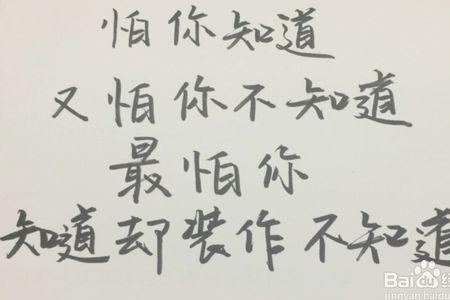 怕你知道
又怕你不知道
最怕你
知道却装作不知道
Bai
jingyan.baidu